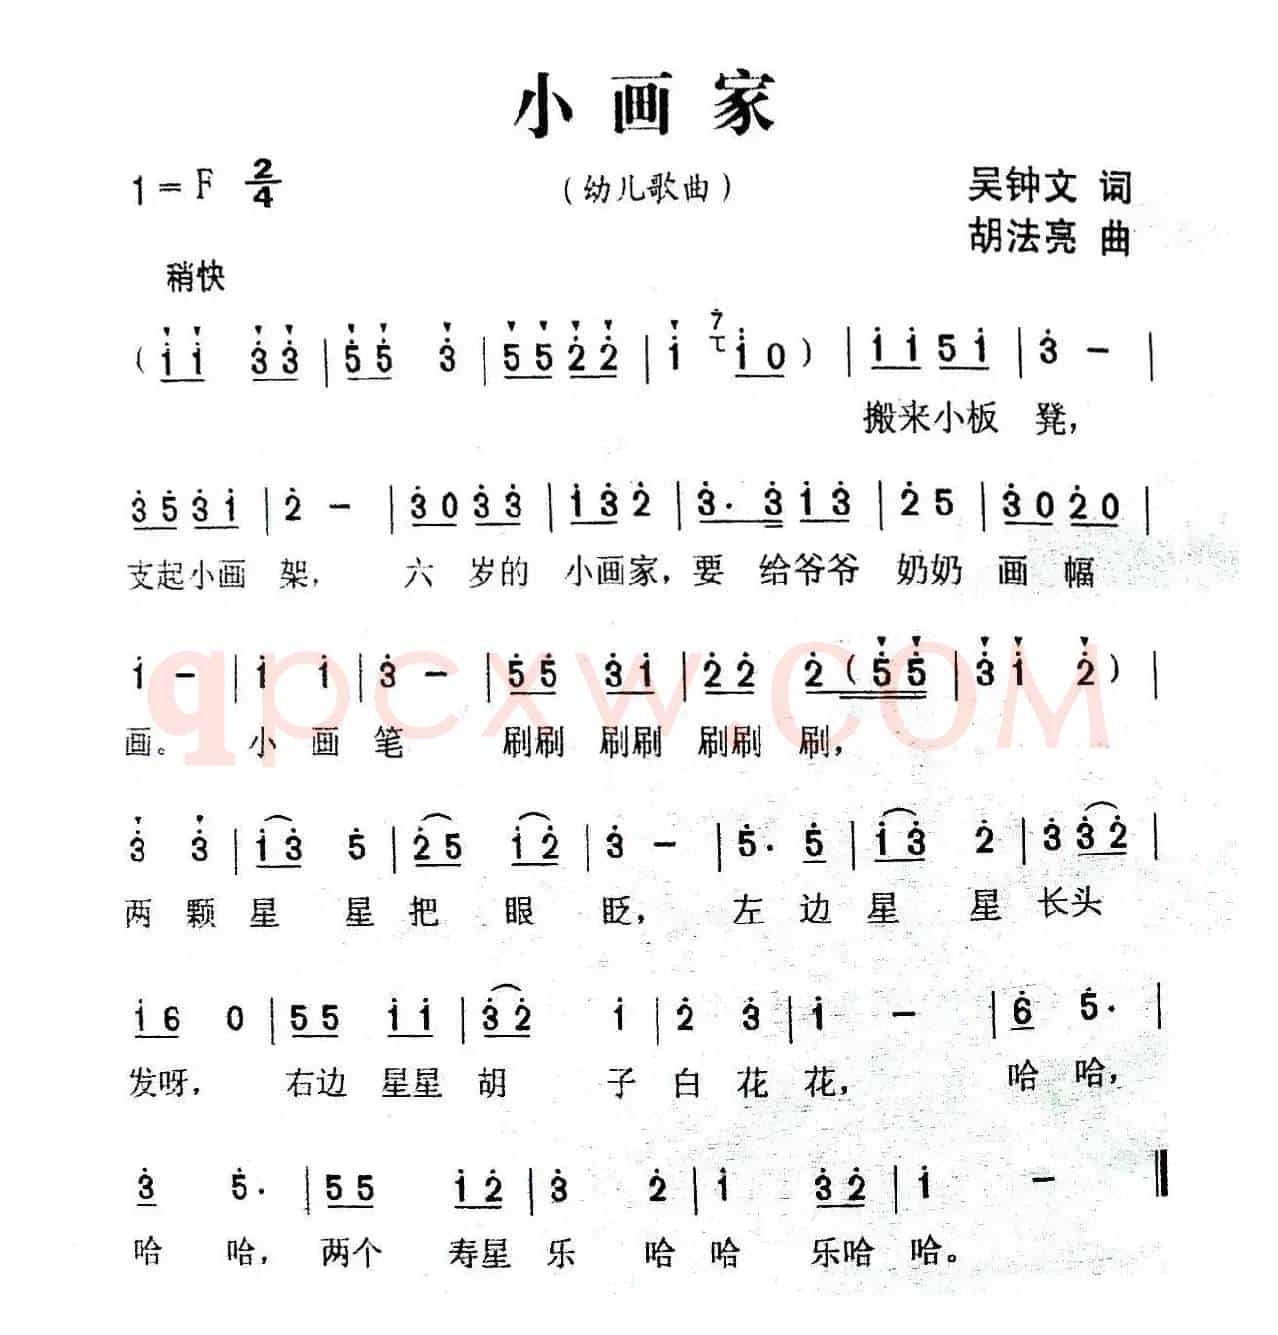 小画家
1=F 2/4
（幼儿歌曲）
吴钟文 词
胡法亮 曲
稍快
（i i 3 3 | 5 5 3 | 5 5 2 2 | i 7 i 0 ） | i i 5 i | 3 － |
搬来小板 凳，
3 5 3 i | 2 － | 3 0 3 3 | i 3 2 | 3 · 3 i 3 | 2 5 | 3 0 2 0 |
支起小画 架， 六 岁的 小画家，要 给爷爷 奶奶 画 幅
i － | i i | 3 － | 5 5 3 i | 2 2 2 （ 5 5 | 3 i 2 ） |
画。 小 画 笔 刷刷 刷刷 刷刷 刷，
3 3 | i 3 5 | 2 5 i 2 | 3 － | 5 · 5 | i 3 2 | 3 3 2 |
两 颗 星 星 把 眼 眨， 左 边 星 星 长头
i 6 0 | 5 5 i i | 3 2 i | 2 3 | i － | 6 5 · |
发呀， 右边 星星 胡 子 白 花 花， 哈 哈，
3 5 · | 5 5 i 2 | 3 2 | i 3 2 | i － ‖
哈 哈， 两个 寿星 乐 哈 哈 乐哈 哈。
qpcxw.COM